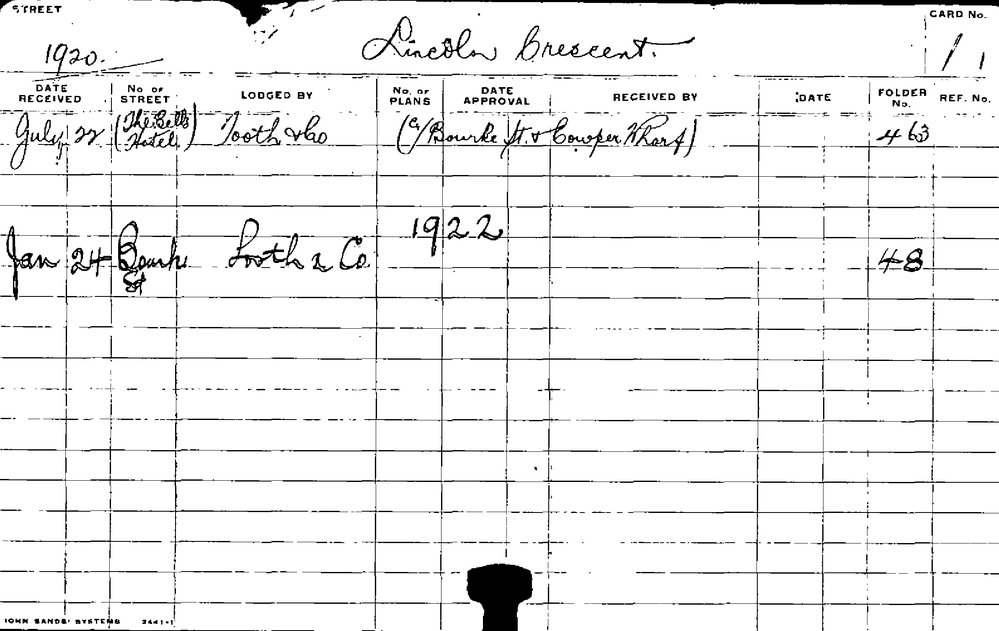 STREET
CARD No.
1920.
Lincoln Crescent.
1 1
DATE RECEIVED No. OF STREET LODGED BY No. OF PLANS DATE APPROVAL RECEIVED BY DATE FOLDER No. REF. No.
July 22 (The Bells Hotel) Tooth & Co (Cr/ Bourke St. & Cowper Wharf) 463
1922
Jan 24 Bourke St Tooth & Co. 48
JOHN SANDS' SYSTEMS 2441-1